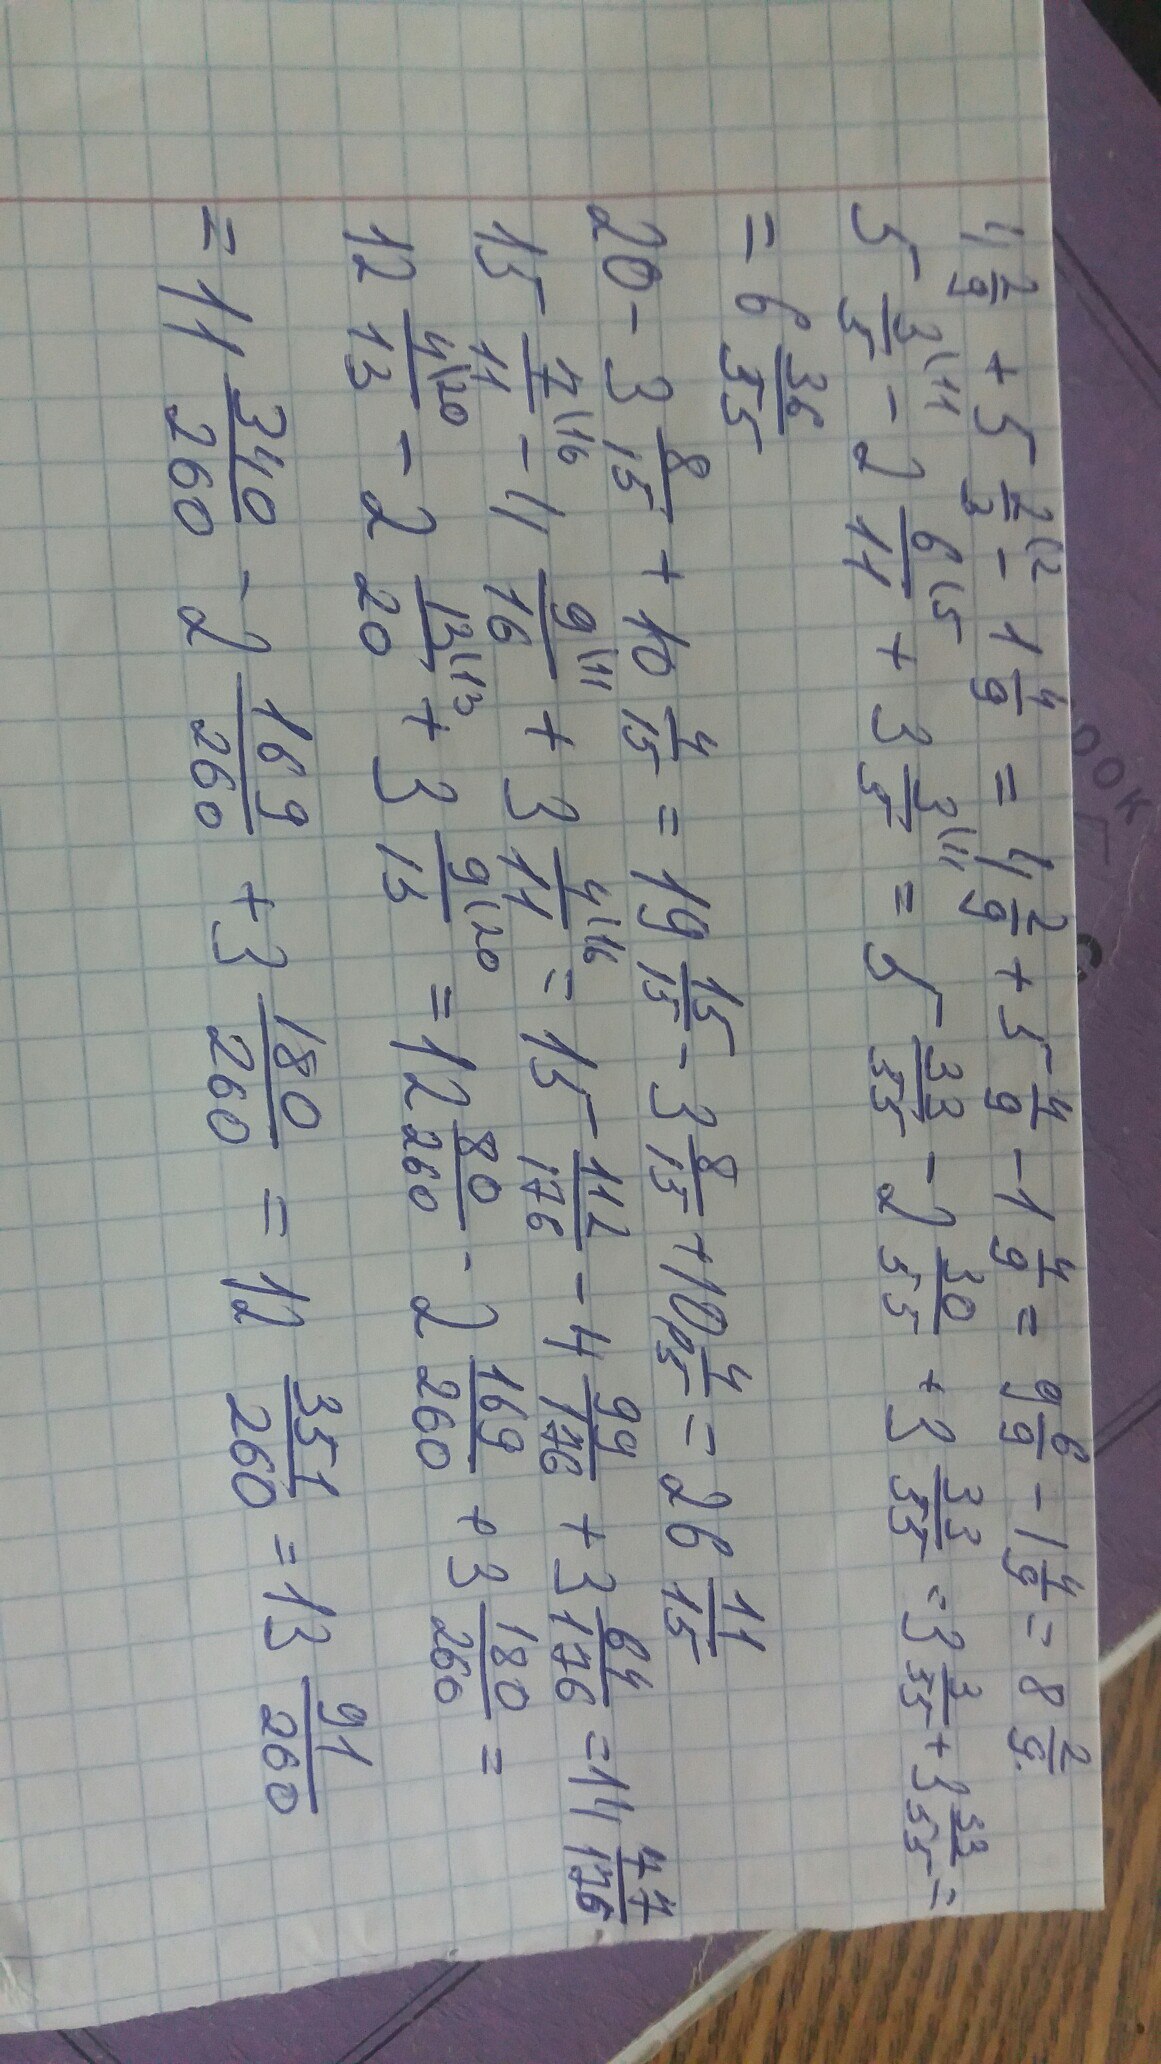 4 2/9 + 5 2\2/3 - 1 4/9 = 4 2/9 + 5 4/9 - 1 4/9 = 9 6/9 - 1 4/9 = 8 2/9
5 3\11/5 - 2 6\5/11 + 3 3\11/5 = 5 33/55 - 2 30/55 + 3 33/55 = 3 3/55 + 3 33/55 =
= 6 36/55
20 - 3 8/15 + 10 4/15 = 19 15/15 - 3 8/15 + 10 4/15 = 26 11/15
15 7\16/11 - 4 9\11/16 + 3 4\16/11 = 15 112/176 - 4 99/176 + 3 64/176 = 14 77/176
12 4\20/13 - 2 13\13/20 + 3 9\20/13 = 12 80/260 - 2 169/260 + 3 180/260 =
= 11 340/260 - 2 169/260 + 3 180/260 = 12 351/260 = 13 91/260